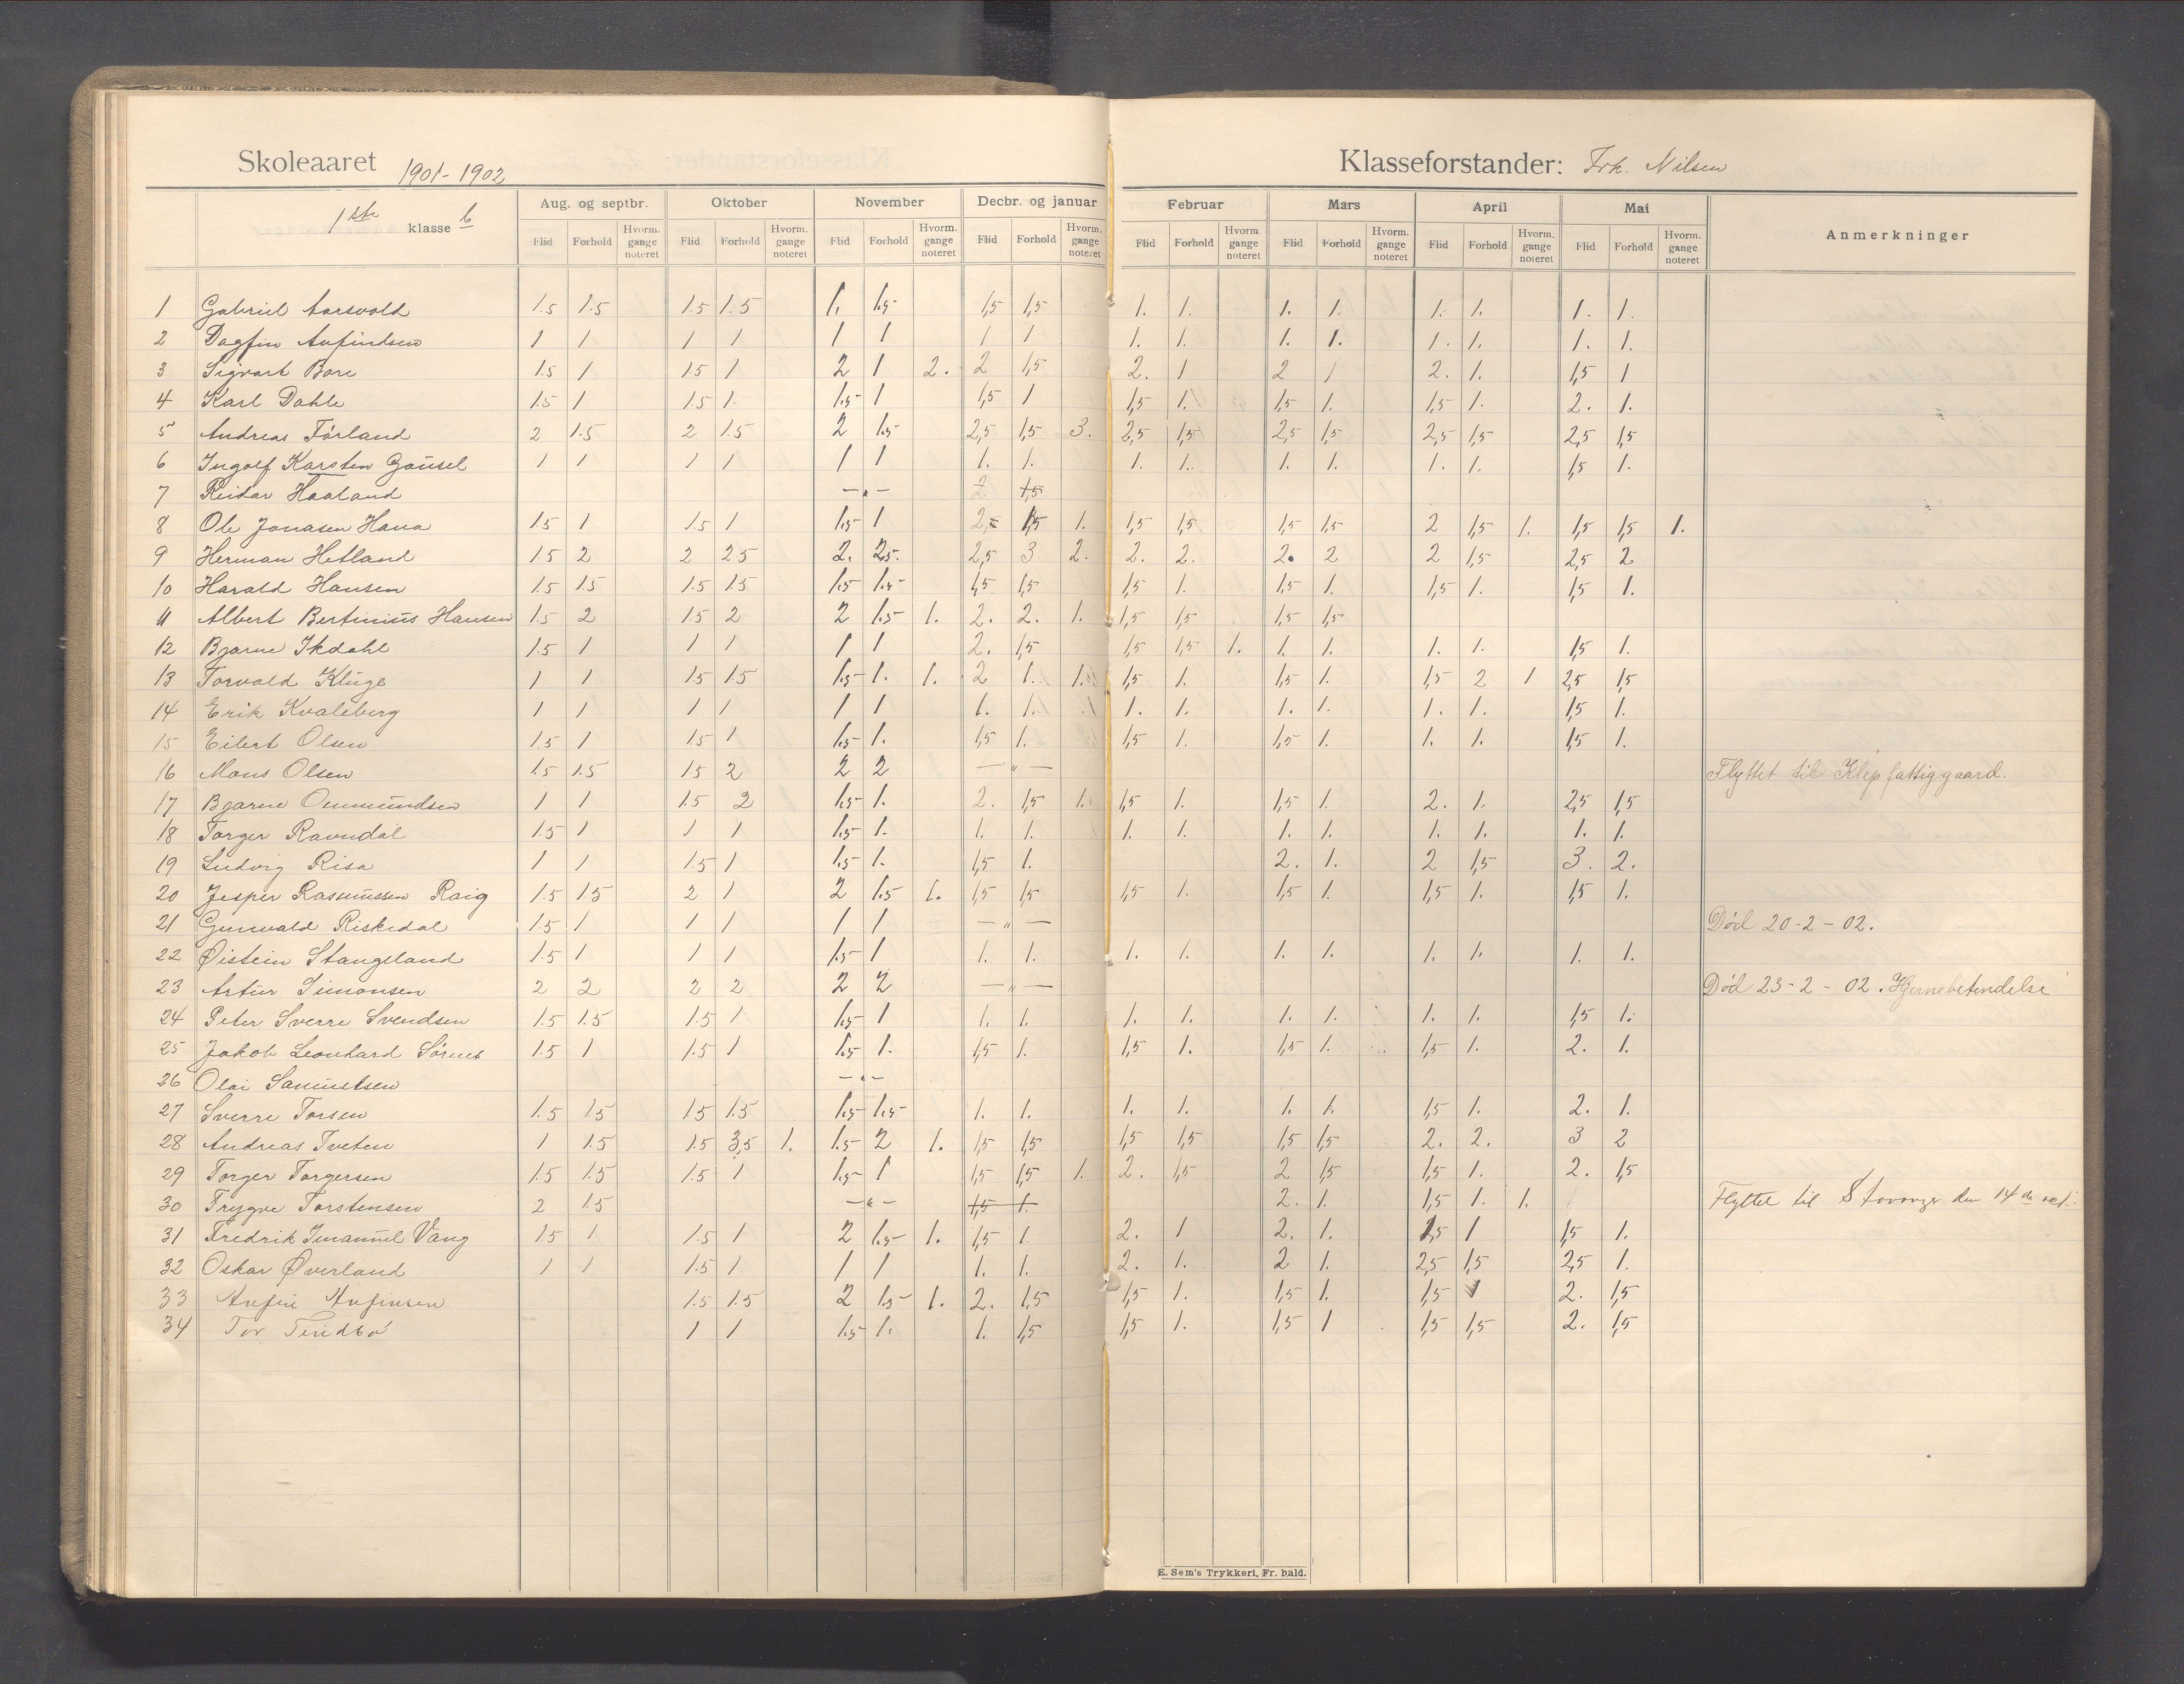 Skoleaaret 1901-1902
Klasseforstander: Frk. Nilsen
1ste klasse b
Aug. og septbr. Oktober November Decbr. og januar Februar Mars April Mai Anmerkninger
Flid Forhold Hvorm. gange noteret Flid Forhold Hvorm. gange noteret Flid Forhold Hvorm. gange noteret Flid Forhold Hvorm. gange noteret Flid Forhold Hvorm. gange noteret Flid Forhold Hvorm. gange noteret Flid Forhold Hvorm. gange noteret Flid Forhold Hvorm. gange noteret
1 Gabriel Aarsvold 1.5 1.5 1.5 1.5 1. 1.5 1,5 1,5 1. 1. 1. 1. 1. 1. 1. 1.
2 Dagfin Anfindsen 1 1 1 1 1 1 1 1 1. 1. 1. 1. 1. 1. 1. 1.
3 Sigvart Bore 1.5 1 1.5 1 2 1 2. 2 1,5 2. 1 2 1 2. 1. 1,5 1
4 Karl Dahle 1.5 1 1.5 1. 1.5 1 1,5 1 1,5 1. 1,5 1. 1,5 1. 2. 1.
5 Andreas Førland 2 1.5 2 1.5 2 1.5 2,5 1,5 3. 2,5 1,5 2,5 1,5 2,5 1,5 2,5 1,5
6 Ingolf Karsten Gausel 1 1 1 1 1 1 1. 1. 1. 1. 1. 1. 1. 1. 1,5 1.
7 Reidar Haaland — " — 2 1,5
8 Ole Jonasen Hana 1.5 1 1.5 1 1.5 1 2 1,5 1. 1,5 1,5 1,5 1,5 2 1,5 1. 1,5 1,5 1.
9 Herman Hetland 1.5 2 2 2.5 2. 2.5. 2,5 3 2. 2. 2. 2. 2 2 1,5 2,5 2
10 Harald Hansen 1.5 1.5 1.5 1.5 1.5 1.5 1,5 1,5 1,5 1. 1,5 1. 1,5 1. 1,5 1.
11 Albert Bertinius Hansen 1.5 2 1.5 2 2 1.5 1. 2. 2. 1. 1,5 1,5 1,5 1,5
12 Bjarne Ikdahl 1.5 1 1 1 1 1 2. 1,5 1,5 1,5 1. 1. 1. 1. 1. 1,5 1.
13 Torvald Kluge 1 1 1.5 1.5 1.5 1. 1. 2 1. 1. 1,5 1. 1,5 1. 1,5 2 1 2,5 1,5
14 Erik Kvaleberg 1 1 1 1 1 1 1. 1. 1. 1. 1. 1. 1. 1. 1,5 1.
15 Eilert Olsen 1.5 1 1.5 1 1.5 1. 1,5 1. 1,5 1. 1,5 1. 1. 1. 1,5 1.
16 Mons Olsen 1.5 1.5 1.5 2 2 2 — " — Flyttet til Klep fattiggaard.
17 Bjarne Ommundsen 1 1 1.5 2 1.5 1. 2. 1,5 1. 1,5 1. 1,5 1. 2. 1. 2,5 1,5
18 Torger Ravndal 1.5 1 1 1 1.5 1. 1. 1. 1. 1. 1. 1. 1. 1. 1. 1.
19 Ludvig Risa 1 1 1.5 1 1.5 1. 1,5 1. 2. 1. 2 1,5 3. 2.
20 Jesper Rasmussen Raig 1.5 1.5 2 1 2 1.5 1. 1,5 1,5 1,5 1. 1,5 1. 1,5 1. 1,5 1.
21 Gunvald Riskedal 1.5 1 1 1 1 1 — " — Død 20-2-02.
22 Øistein Stangeland 1.5 1 1 1 1.5 1 1. 1. 1. 1. 1. 1. 1. 1. 1. 1.
23 Artur Simonsen 2 2 2 2 2 2 — " — Død 23-2-02. Hjernebetendelse
24 Peter Sverre Svendsen 1.5 1.5 1.5 1 1.5 1 1. 1. 1. 1. 1. 1. 1. 1. 1,5 1.
25 Jakob Leonhard Sørnes 1.5 1 1.5 1 1.5 1. 1,5 1. 1,5 1. 1,5 1. 1,5 1. 2. 1.
26 Olai Samuelsen — " —
27 Sverre Torsen 1.5 1.5 1.5 1.5 1.5 1.5 1. 1. 1. 1. 1. 1. 1,5 1. 2. 1.
28 Andreas Tveten 1 1.5 1.5 3,5 1. 1.5 2 1. 1,5 1,5 1,5 1,5 1,5 1,5 2. 2. 3 2
29 Torger Torgersen 1.5 1.5 1.5 1 1.5 1 1,5 1,5 1. 2. 1,5 2 1,5 1,5 1. 2. 1,5
30 Trygve Torstensen 2 1.5 — " — 1,5 1. 2. 1. 1,5 1. 1. Flyttet til Stavanger den 14de
31 Fredrik Imanuel Vang 1.5 1 1.5 1 2 1.5 1. 1,5 1. 2. 1 2. 1. 1,5 1 1,5 1.
32 Oskar Øverland 1 1 1.5 1 1 1 1. 1. 2. 1. 2 1. 2,5 1,5 2,5 1.
33 Anfin Anfinsen 1.5 1.5 2 1.5 1. 2. 1,5 1,5 1. 1,5 1. 1,5 1 2. 1,5
34 Tor Tindbø 1 1 1.5 1. 1. 1,5 1,5 1. 1,5 1 1,5 1,5 2. 1,5
E. Sem's Trykkeri, Fr. hald.